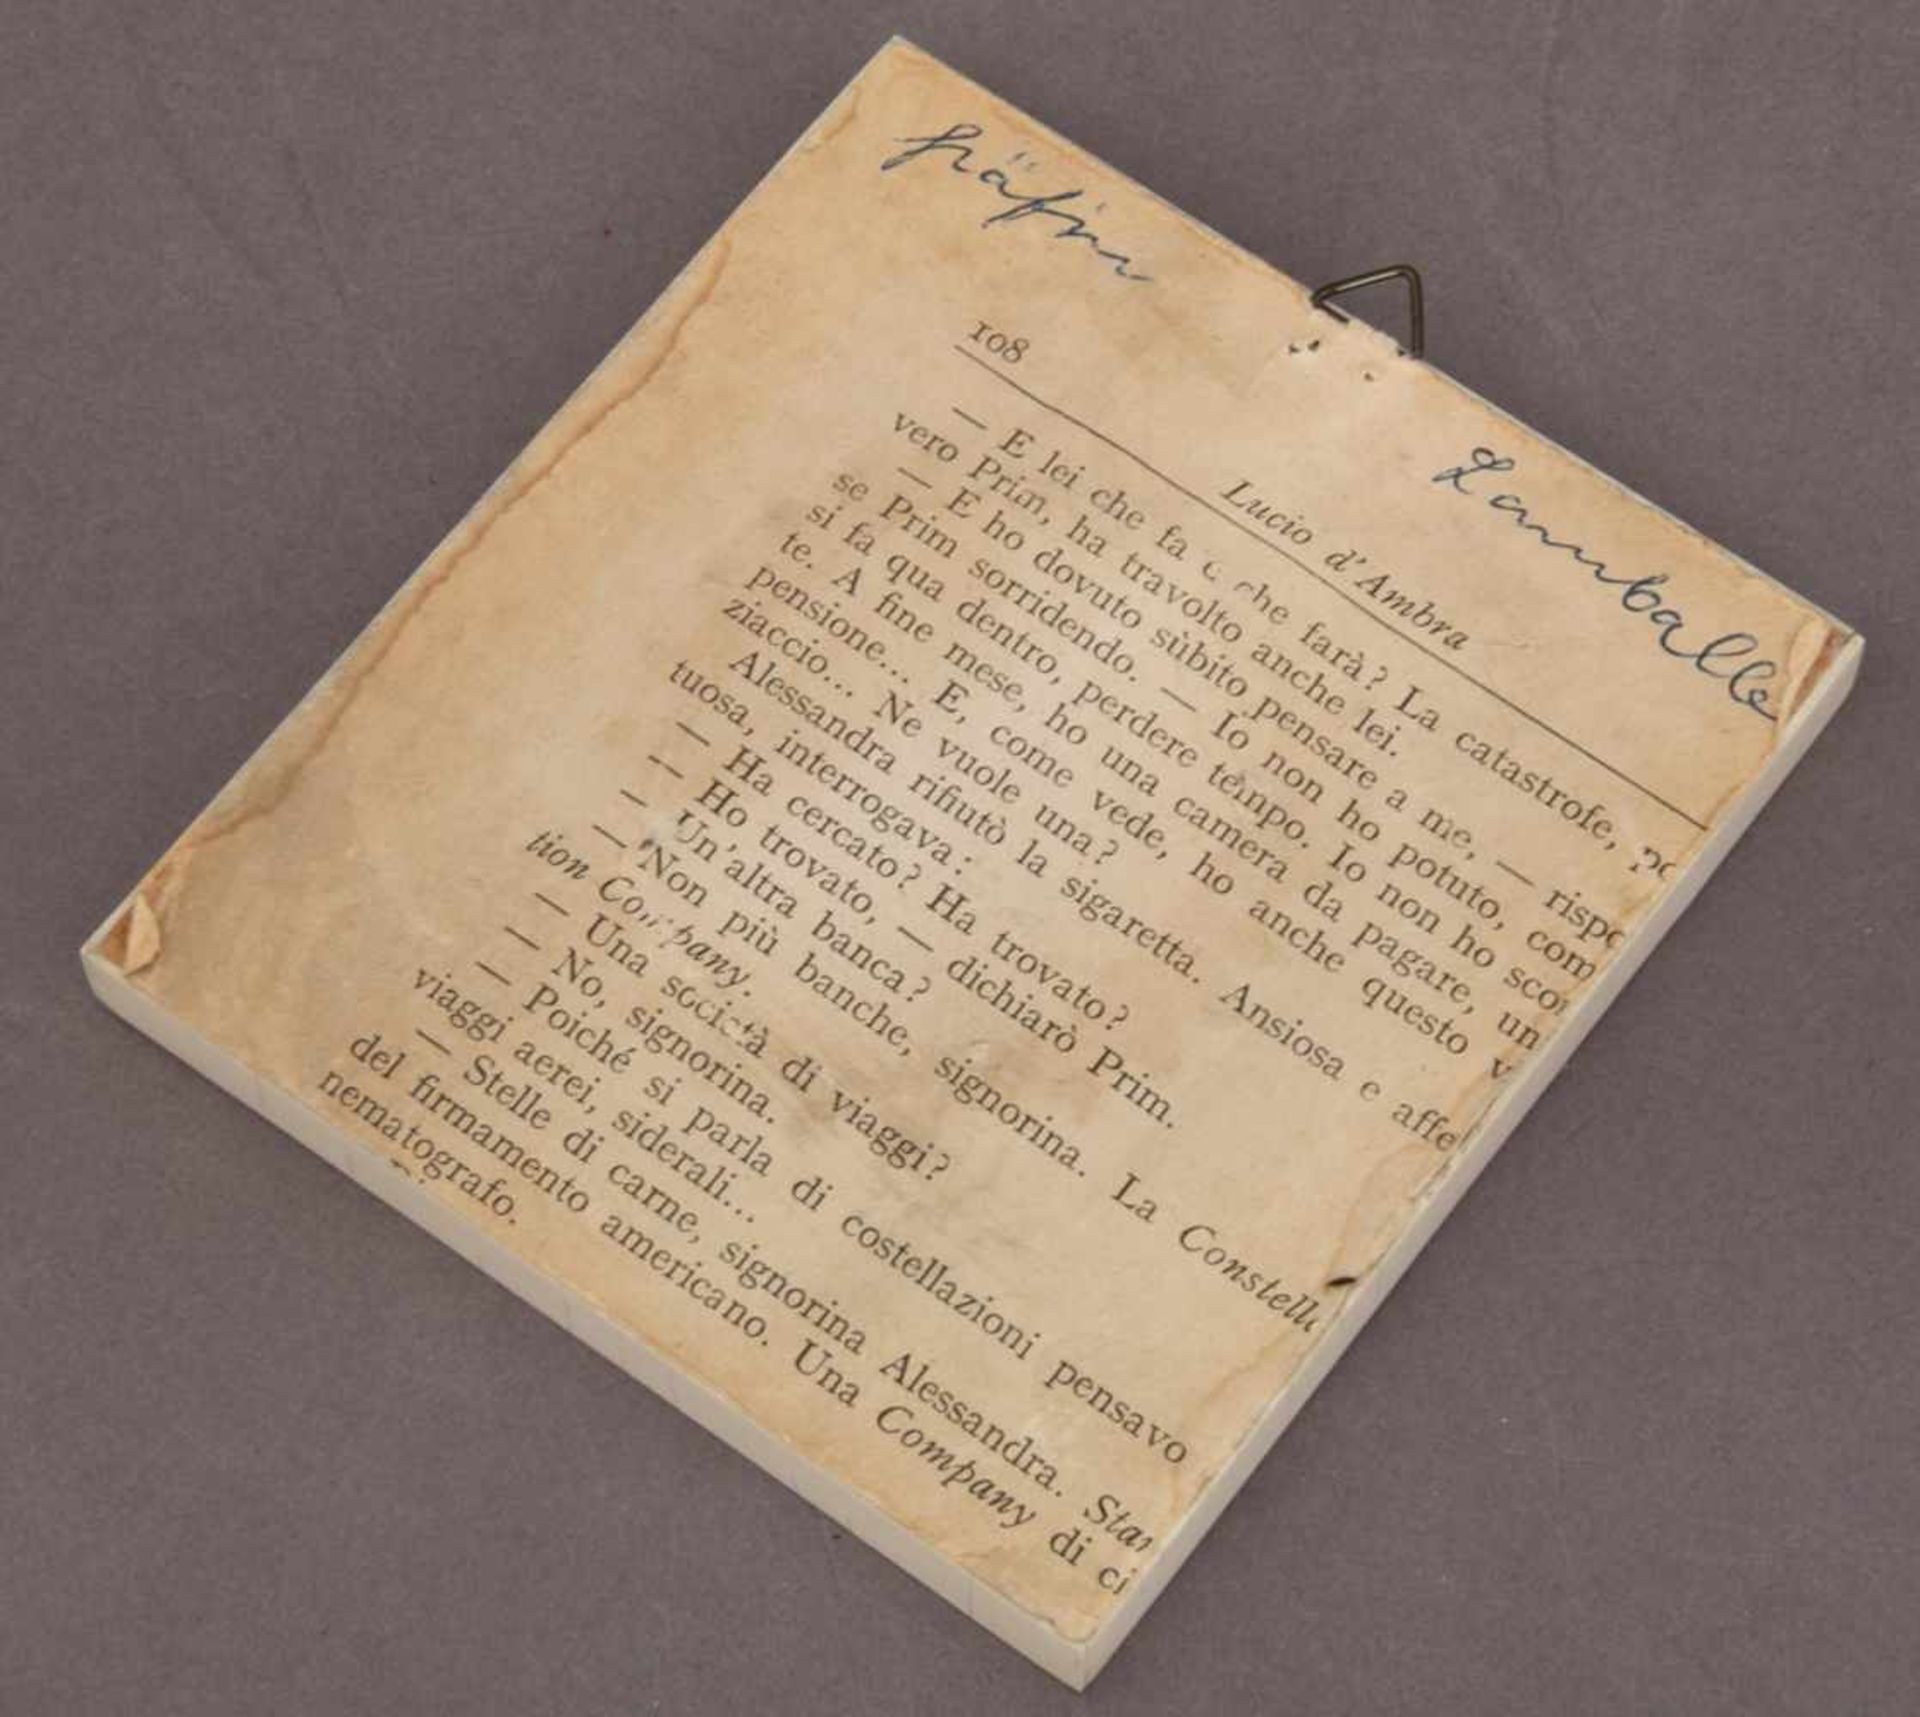 Gräfin
Lamballe
108
Lucio d'Ambra
— E lei che fa e che farà? La catastrofe, po
vero Prim, ha travolto anche lei.
— E ho dovuto sùbito pensare a me, — rispo
se Prim sorridendo. — Io non ho potuto, com
si fa qua dentro, perdere tempo. Io non ho scor
te. A fine mese, ho una camera da pagare, un
pensione... E, come vede, ho anche questo v
ziaccio... Ne vuole una?
Alessandra rifiutò la sigaretta. Ansiosa e affe
tuosa, interrogava:
— Ha cercato? Ha trovato?
— Ho trovato, — dichiarò Prim.
— Un'altra banca?
— Non più banche, signorina. La Constella
tion Company.
— Una società di viaggi?
— No, signorina.
— Poiché si parla di costellazioni pensavo
viaggi aerei, siderali...
— Stelle di carne, signorina Alessandra. Star
del firmamento americano. Una Company di ci
nematografo.